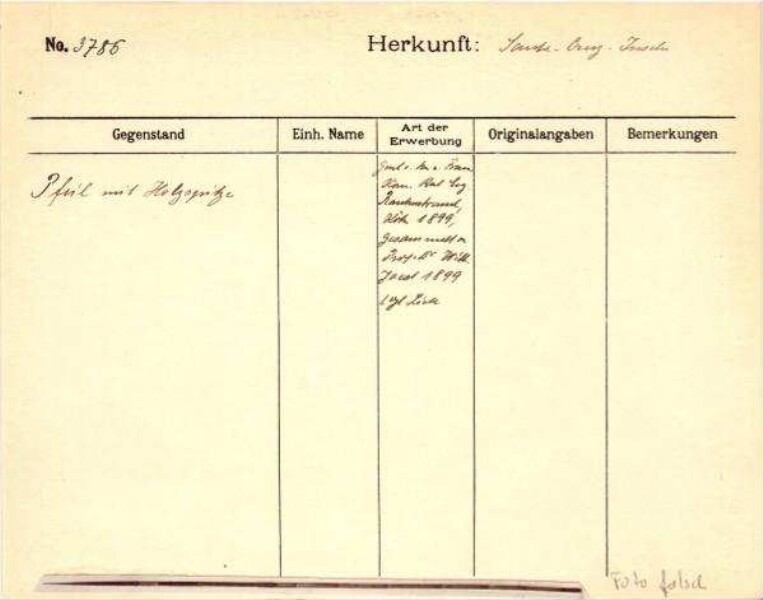 No. 3786 Herkunft: Santa-Cruz-Inseln
Gegenstand Einh. Name Art der Erwerbung Originalangaben Bemerkungen
Pfeil mit Holzspitze
Rautenstrauch,
Köln 1899,
gesammelt v.
Prof. Dr Wilh.
Joest 1899
Foto falsch